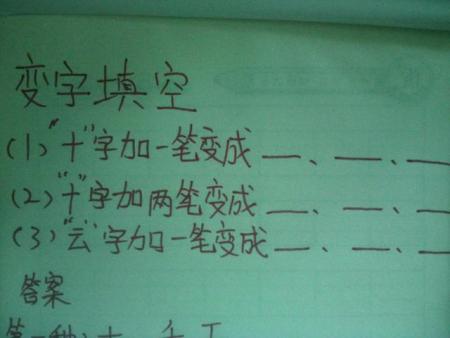 变字填空
(1)"十"字加一笔变成__、__、__
(2)"十"字加两笔变成__、__、__
(3)"云"字加一笔变成__、__、__
答案
第一种：土、千